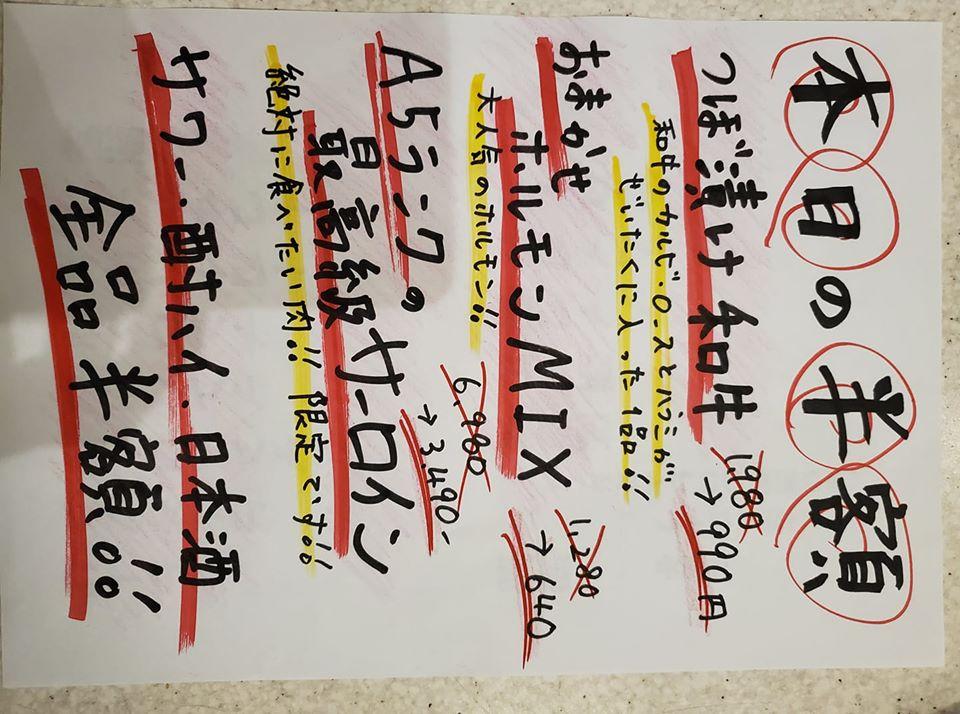 本日の半額
つぼ漬け和牛
1,980 → 990円
和牛のカルビ・ロースとハラミが
ぜいたくに入った1品!!
おまかせ
ホルモンMIX
1,280 → 640
大人気のホルモン!!
A5ランクの
6,980 → 3,490-
最高級サーロイン
絶対に食べたい肉!! 限定です!!
サワー・酎ハイ・日本酒
全品半額!!